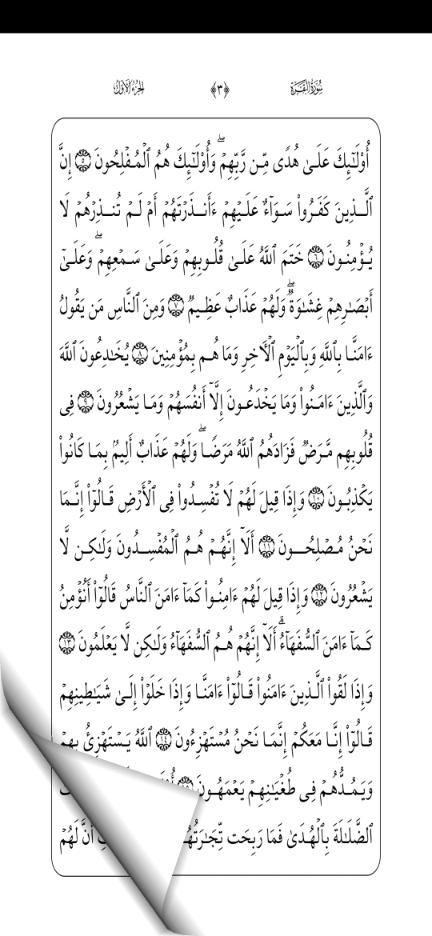 سُورَةُ البَقَرَةِ ﴿٣﴾ الجُزْءُ الأَوَّلُ
أُوْلَٰٓئِكَ عَلَىٰ هُدًى مِّن رَّبِّهِمْ ۖ وَأُوْلَٰٓئِكَ هُمُ ٱلْمُفْلِحُونَ ٥ إِنَّ
ٱلَّذِينَ كَفَرُواْ سَوَآءٌ عَلَيْهِمْ ءَأَنذَرْتَهُمْ أَمْ لَمْ تُنذِرْهُمْ لَا
يُؤْمِنُونَ ٦ خَتَمَ ٱللَّهُ عَلَىٰ قُلُوبِهِمْ وَعَلَىٰ سَمْعِهِمْ ۖ وَعَلَىٰٓ
أَبْصَٰرِهِمْ غِشَٰوَةٌ ۖ وَلَهُمْ عَذَابٌ عَظِيمٌ ٧ وَمِنَ ٱلنَّاسِ مَن يَقُولُ
ءَامَنَّا بِٱللَّهِ وَبِٱلْيَوْمِ ٱلْأٓخِرِ وَمَا هُم بِمُؤْمِنِينَ ٨ يُخَٰدِعُونَ ٱللَّهَ
وَٱلَّذِينَ ءَامَنُواْ وَمَا يَخْدَعُونَ إِلَّآ أَنفُسَهُمْ وَمَا يَشْعُرُونَ ٩ فِى
قُلُوبِهِم مَّرَضٌ فَزَادَهُمُ ٱللَّهُ مَرَضًا ۖ وَلَهُمْ عَذَابٌ أَلِيمٌۢ بِمَا كَانُواْ
يَكْذِبُونَ ١٠ وَإِذَا قِيلَ لَهُمْ لَا تُفْسِدُواْ فِى ٱلْأَرْضِ قَالُوٓاْ إِنَّمَا
نَحْنُ مُصْلِحُونَ ١١ أَلَآ إِنَّهُمْ هُمُ ٱلْمُفْسِدُونَ وَلَٰكِن لَّا
يَشْعُرُونَ ١٢ وَإِذَا قِيلَ لَهُمْ ءَامِنُواْ كَمَآ ءَامَنَ ٱلنَّاسُ قَالُوٓاْ أَنُؤْمِنُ
كَمَآ ءَامَنَ ٱلسُّفَهَآءُ ۗ أَلَآ إِنَّهُمْ هُمُ ٱلسُّفَهَآءُ وَلَٰكِن لَّا يَعْلَمُونَ ١٣
وَإِذَا لَقُواْ ٱلَّذِينَ ءَامَنُواْ قَالُوٓاْ ءَامَنَّا وَإِذَا خَلَوْاْ إِلَىٰ شَيَٰطِينِهِمْ
قَالُوٓاْ إِنَّا مَعَكُمْ إِنَّمَا نَحْنُ مُسْتَهْزِءُونَ ١٤ ٱللَّهُ يَسْتَهْزِئُ بِهِمْ
وَيَمُدُّهُمْ فِى طُغْيَٰنِهِمْ يَعْمَهُونَ
ٱلضَّلَٰلَةَ بِٱلْهُدَىٰ فَمَا رَبِحَت تِّجَٰرَتُهُمْ أَنَّ لَهُمْ